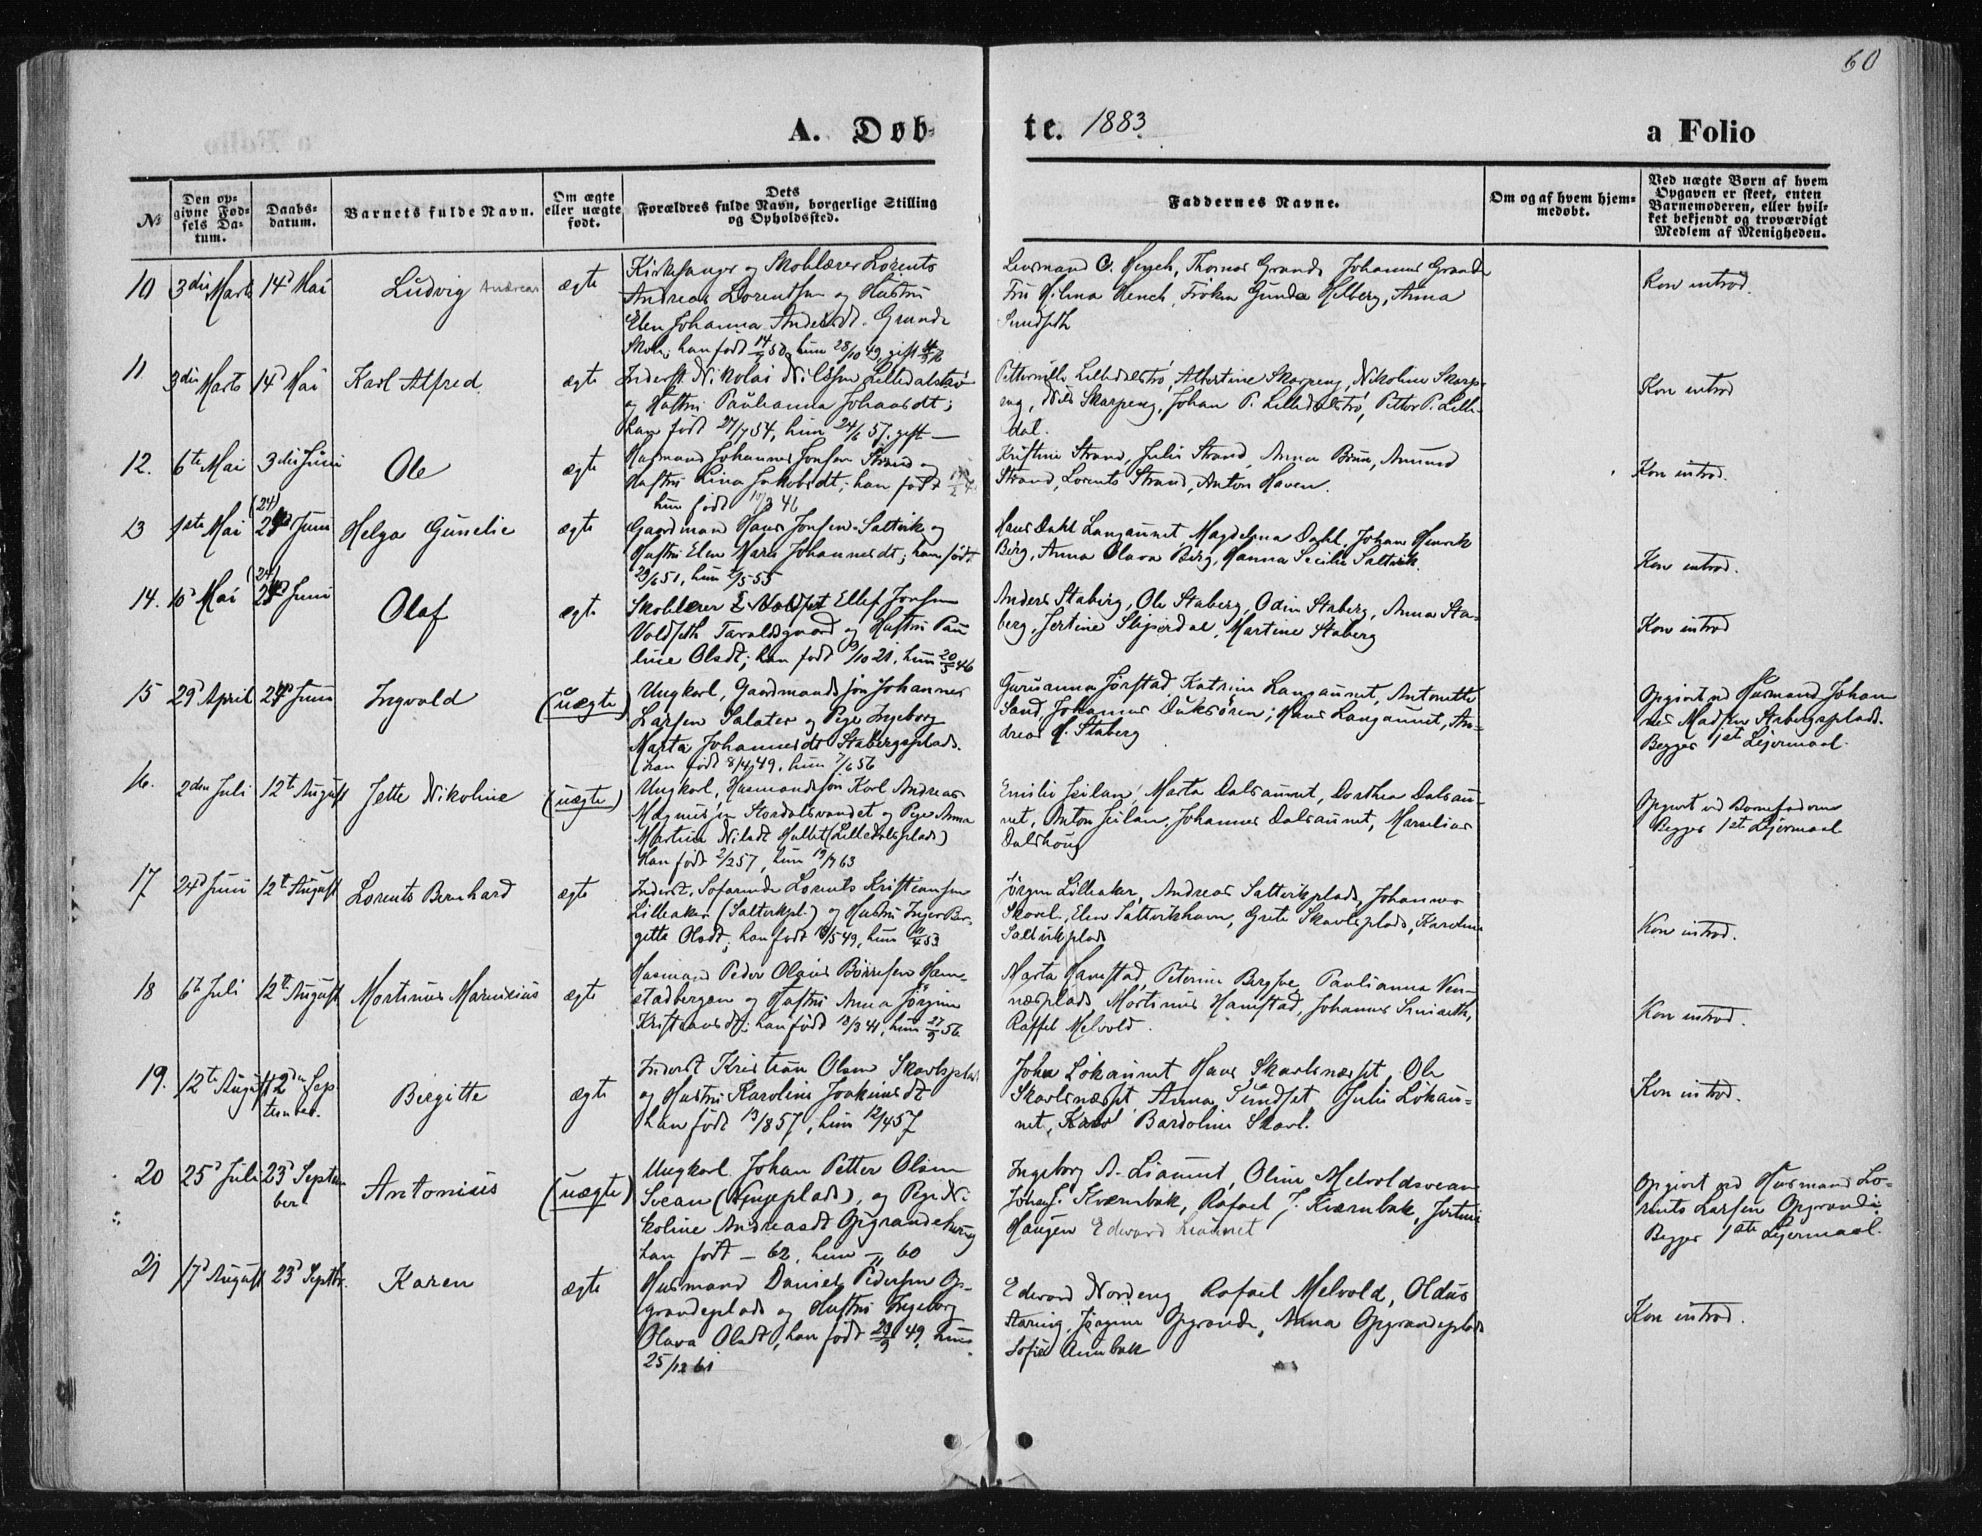 60
A. Døb-
te. 1883.
a Folio
No
Den op-
givne Fød-
sels Da-
tum.
Daabs-
datum.
Barnets fulde Navn.
Om ægte
eller uægte
født.
Dets
Forældres fulde Navn, borgerlige Stilling
og Opholdssted.
Faddernes Navne.
Om og af hvem hjem-
medøbt.
Ved uægte Børn af hvem
Opgaven er skeet, enten
Barnemoderen, eller hvil-
ket bekjendt og troværdigt
Medlem af Menigheden.
10 3die Marts 14d Mai Ludvig Andreas ægte
Kirkesanger og Skolelærer Lorents
Andreas Lorentsen og Hustru
Elen Johanna Andersdt. Grande
Skole; han født 14/ 50, hun 28/10 49, gift
Lensmand C. Hench, Thomas Grande Johannes Grande
Fru Hilma Hench, Frøken Gunda Helberg, Anna
Sundseth
Kon introd.
11. 3die Marts 14d Mai Karl Alfred. ægte
Inderst Nikolai Nilsen Lilledalstrø
og Hustru Paulianna Johansdt;
han født 27/7 54, hun 24/6 57, gift —
Petternille Lilledalstrø, Albertine Skarpeng, Nikoline Skarp-
eng, Nils Skarpeng, Johan P. Lilledalstrø, Petter P. Lille-
dal.
Kon introd
12. 6te Mai 3die Juni Ole ægte
Husmand Johannes Jonsen Strand og
Hustru Lina Jakobsdt; han født
hun født 10/3 46
Kristine Strand, Julie Strand, Anna Brun, Amund
Strand, Lorents Strand, Anton Haven.
Kon introd.
13 1ste Mai (24) Juni Helga Gunelie ægte
Gaardmand Hans Jonsen Saltvik og
Hustru Elen Marta Johannesdt; han født
29/6 51, hun 2/5 55
Hans Dahl Langaunet Magdelena Dahl, Johan Henrik
Berg, Anna Olava Berg, Hanna Secilie Saltvik.
Kon introd.
14. 10d Mai (24) Juni Olaf ægte
Skolelærer Ellef Jonsen
Voldseth Taraldsgaard og Hustru Pau
line Olsdt; han født 9/10 21, hun 20/5 46
Anders Staberg, Ole Staberg, Odin Staberg, Anna Sta-
berg, Jertine Sliperdal, Martine Staberg
Kon introd
15 29d April 24d Juni Ingvald (uægte)
Ungkarl, Gaardmandssøn Johannes
Larsen Salater og Pige Ingeborg
Marta Johannesdt Stabergsplads.
han født 8/4 49, hun 7/6 56
Gurianna Jørstad, Katrine Langaunet, Antonette
Sand, Johannes Duksøren; Hans Langaunet, An-
dreas H. Staberg
Opgivet ved Husmand Johan
nes Madsen Stabergsplads.
Begges 1ste Lejermaal.
16. 2den Juli 12te August Jette Nikoline (uægte)
Ungkarl, Husmandssøn Karl Andreas
Magnussen Stordalsvandet og Pige Anna
Martine Nilsdt Hallet (Lilledalsplads)
Han født 2/2 57, hun 19/7 63
Emilie Jeilan, Marta Dalsaunet, Dorthea Dalsau-
net, Anton Jeilan, Johannes Dalsaunet, Marselius
Dalshoug
Opgivet ved Barnefaderen
Begges 1ste Lejermaal
17 24d Juni 12te August Lorents Bernhard ægte
Inderst, Sofarende Lorents Kristiansen
Lilleaker (Saltvikpl.) og Hustru Inger Ber-
gitte Olsdt; han født 18/5 49, hun 11/4 53
Jørgen Lilleaker, Andreas Saltvikplads, Johannes
Skavl, Elen Saltvikhavn, Grete Skavlsplads, Karoline
Saltvikplads
Kon introd.
18 6te Juli 12te August Mortinus Marinius ægte
Husmand Peder Olaus Børresen Ham-
stadbergan og Hustru Anna Jørgine
Kristiansdt; han født 13/3 41, hun 27/9 56
Marta Hamstad, Peterine Bergsve, Paulianna Ven-
næsplads Mortinus Hamstad, Johannes Smiseth,
Raffel Melvold.
Kon introd.
19. 12te August 2den Sep
tember. Birgitte ægte
Inderst Kristian Olsen Skavlsplads
og Hustru Karoline Joakimsdt
han født 13/8 57, hun 12/4 57
Johan Løkaunet Hans Skavlsnæsset, Ole
Skavlsnæsset Anna Sundset Julie Løkau-
net, Bardoline Skavl.
Kon introd.
20 25d Juli 23d Septem
ber Antonius (uægte)
Ungkarl Johan Petter Olsen
Svean (Hyngeplads), og Pige Ni-
koline Andreasdt Opgrandehaug
han født — 62, hun — 60
Ingeborg A. Liaunet, Oline Melvoldsvean
Kværnbak, Rafael J. Kværnbak, Jertine
Haugen Edevard Liaunet
Opgivet ved Husmand Lo-
rents Larsen Opgrande
Begges 1ste Lejermaal.
21 17d August 23d Septbr. Karen ægte
Husmand Daniel Pedersen Op-
grandeplads og Hustru Ingeborg
Olava Olsdt, han født 29/9 49, hun
25/12 61
Edevard Nordeng, Rafael Melvold, Oldus
Staring, Jørgine Opgrande, Anna Opgrandeplads
Sofie Aunbak
Kon introd.